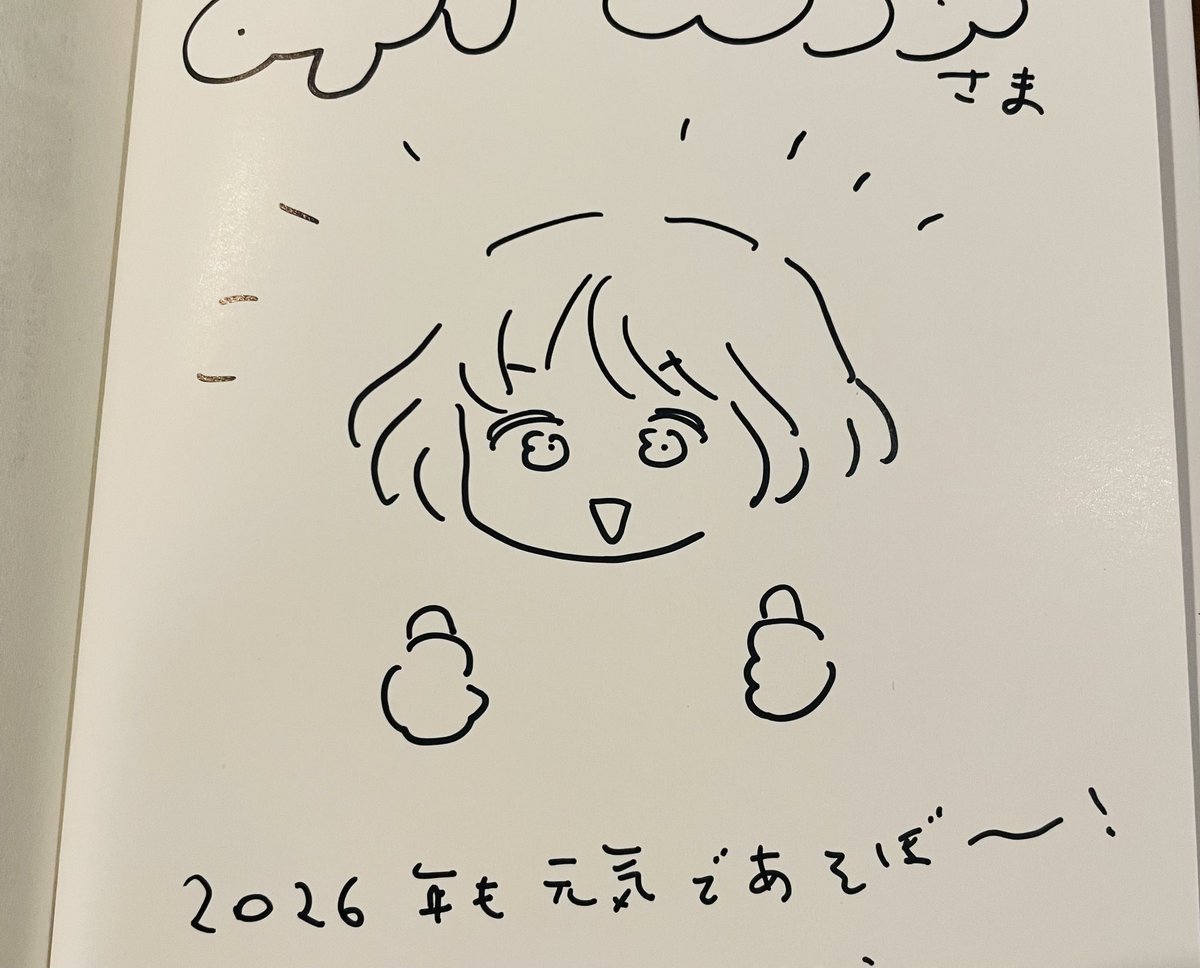 さま
2026年も元気であそぼ〜!